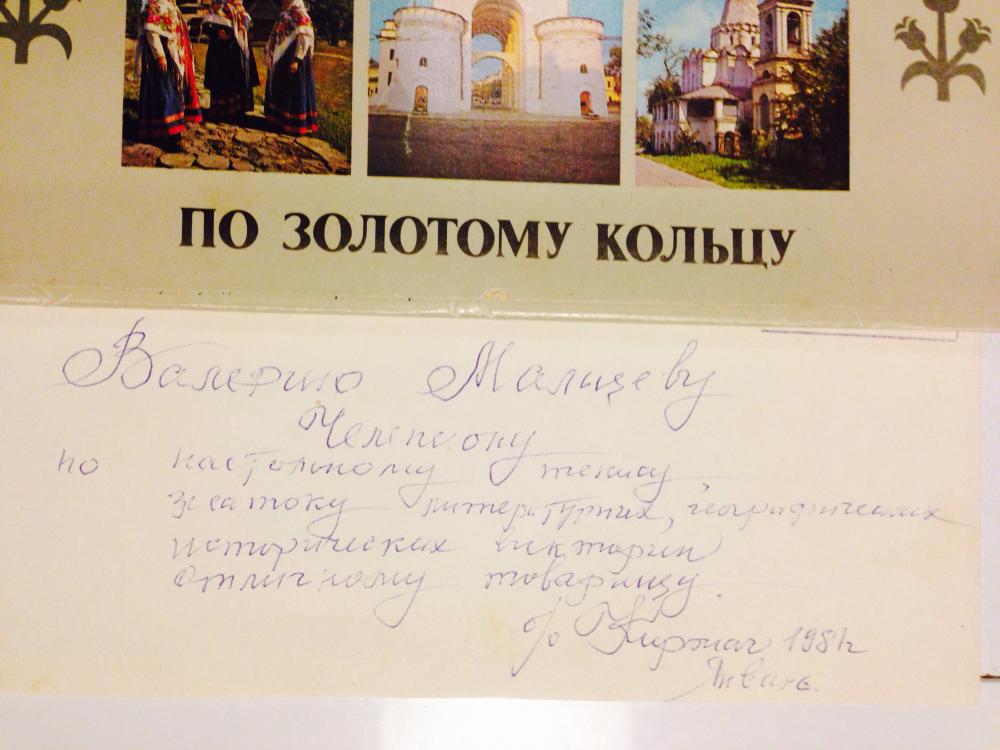 ПО ЗОЛОТОМУ КОЛЬЦУ
Валерию Мальцеву
Чемпиону
по настольному теннису
знатоку литературных, географических
исторических викторин
отличному товарищу.
Киржач 1981г
Январь.